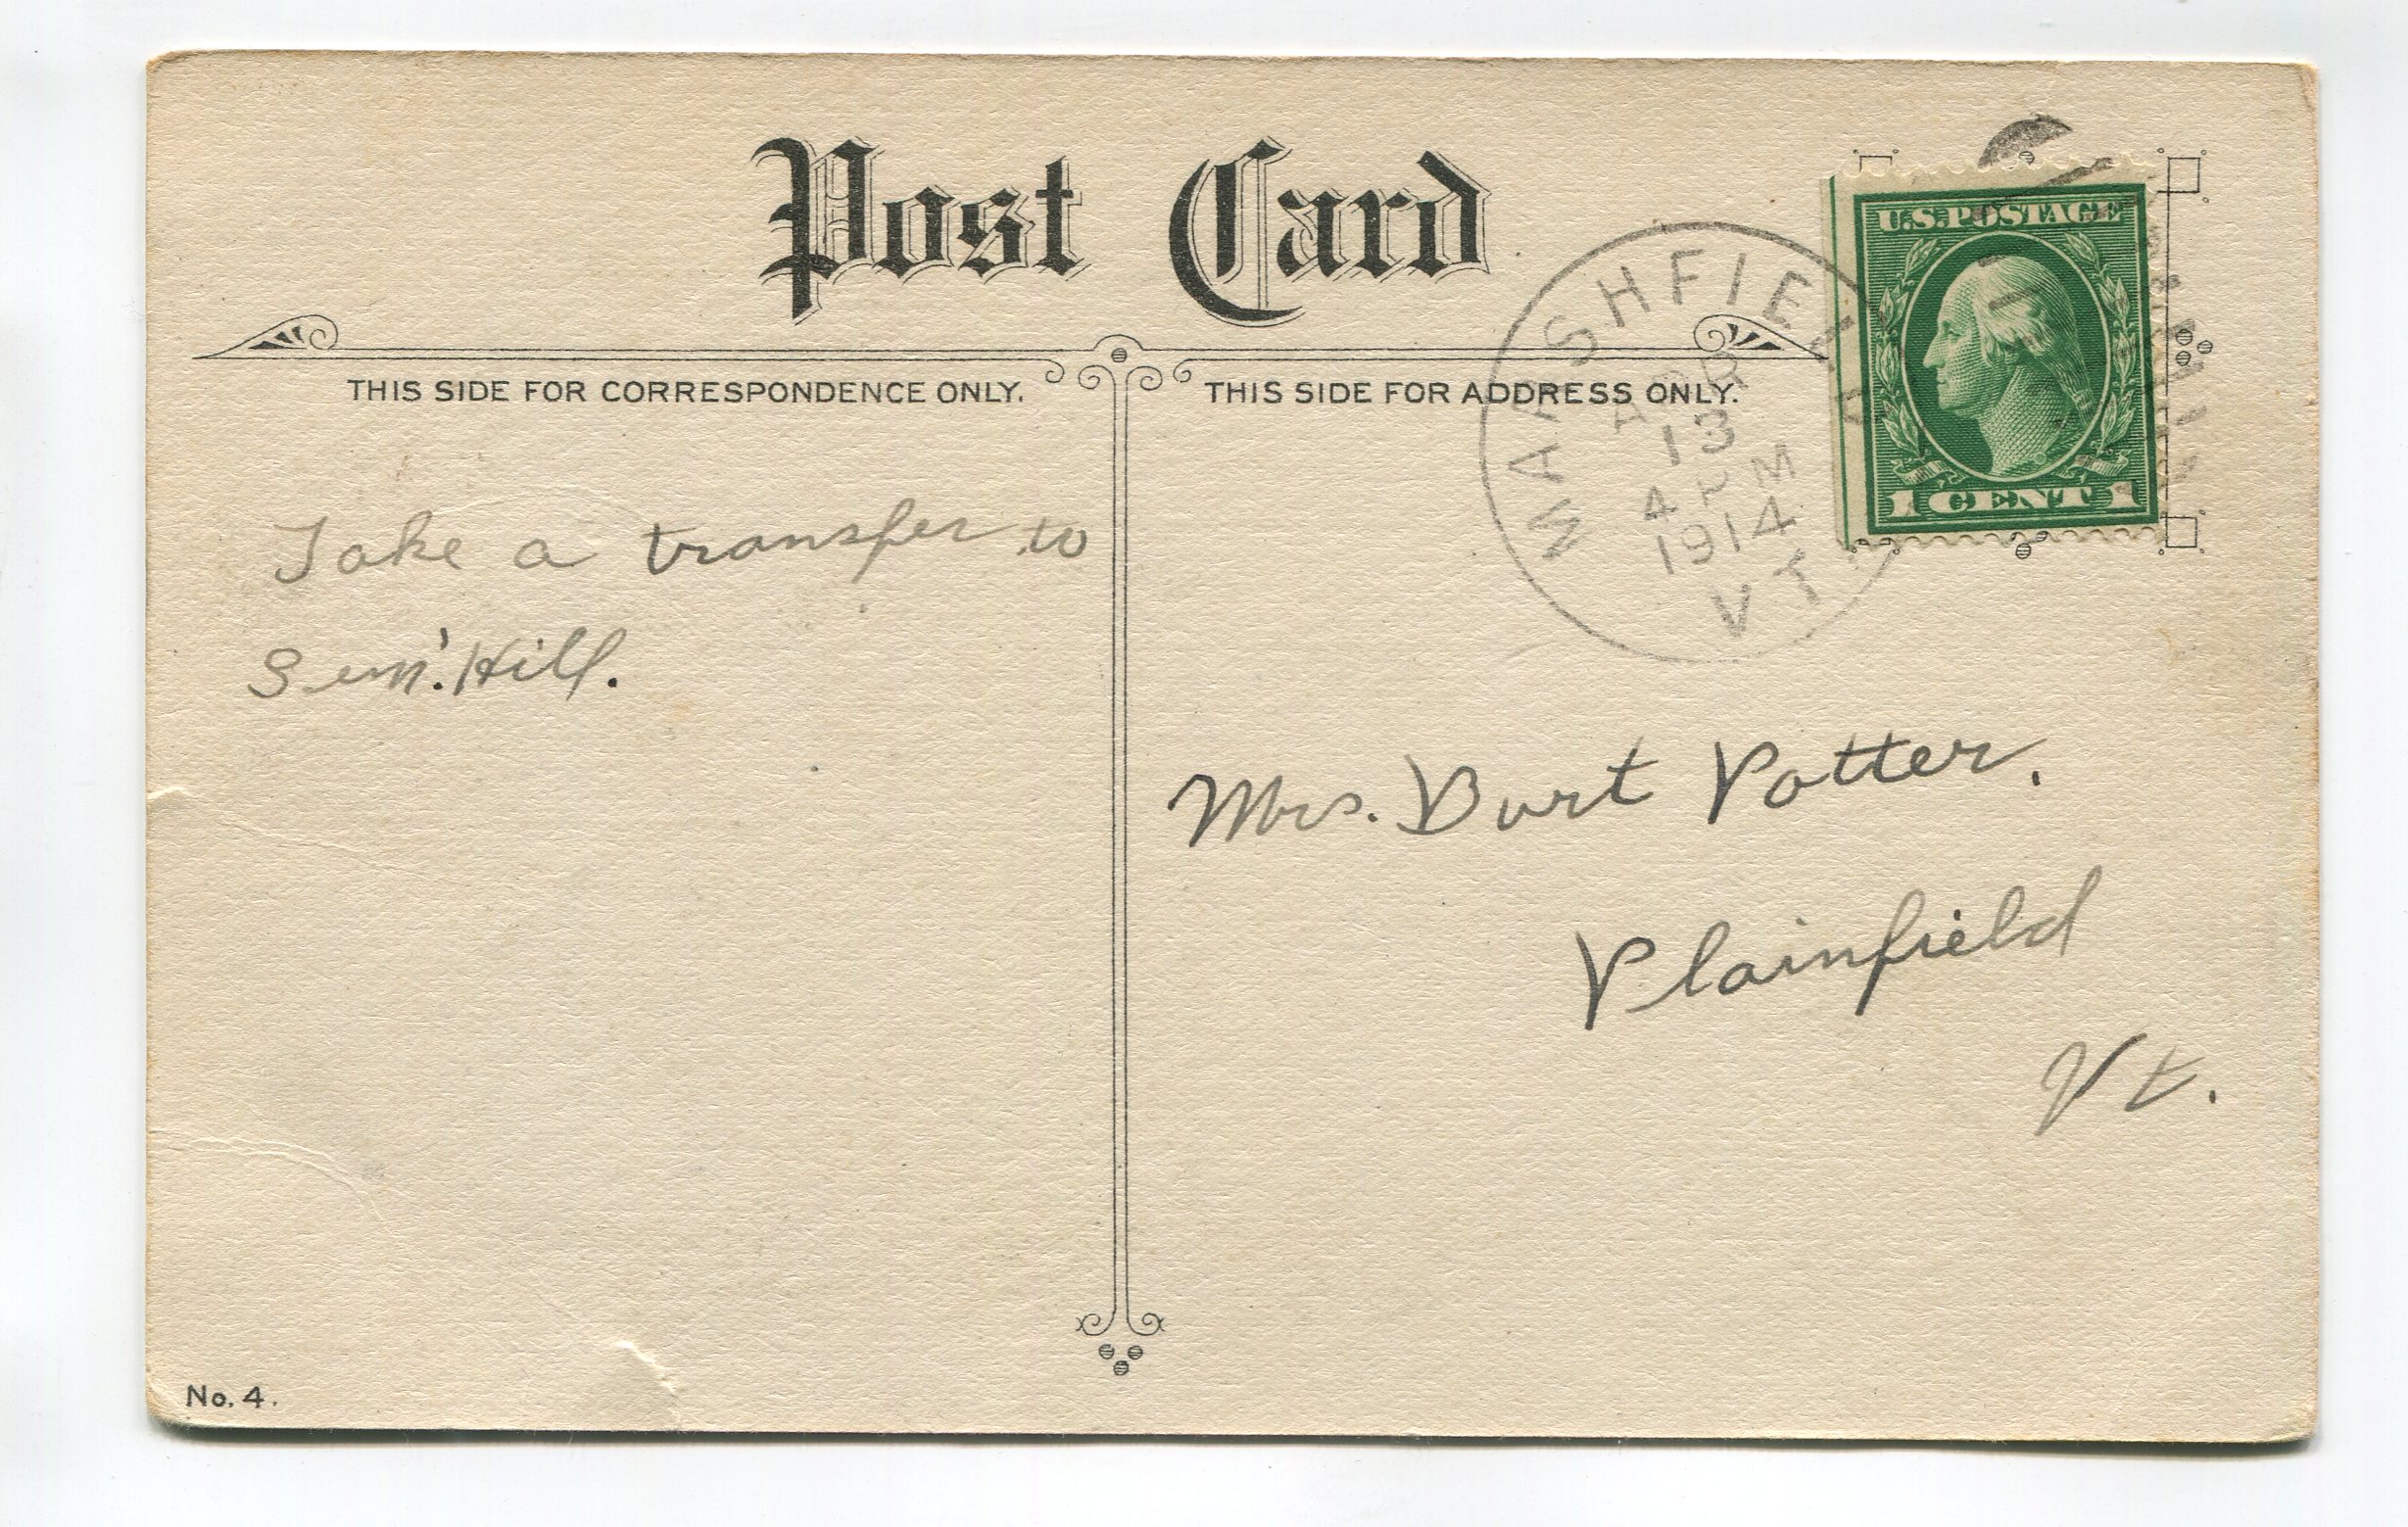 Post Card
THIS SIDE FOR CORRESPONDENCE ONLY.
THIS SIDE FOR ADDRESS ONLY.
MARSHFIELD
APR
13
4 PM
1914
VT.
U.S. POSTAGE
1 CENT 1
Take a transfer to
Sem'. Hill.
Mrs. Burt Potter.
Plainfield
Vt.
No. 4.